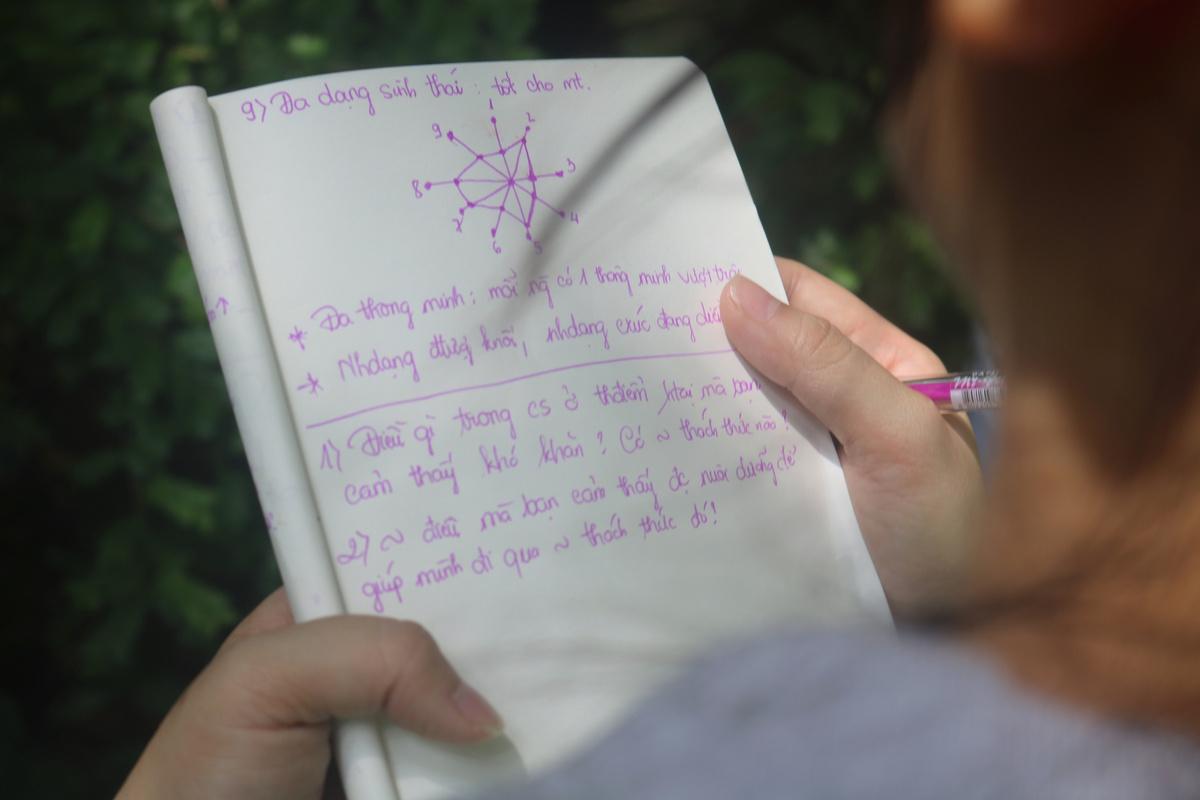 9) Đa dạng sinh thái : tốt cho mt.
1
2
3
4
5
6
7
8
9
* Đa thông minh : mỗi ng có 1 thông minh vượt trội
* Nhdạng được khối, nhdạng cxúc đang
1) Điều gì trong cs ở thđiểm htại mà bạn
cảm thấy khó khăn? Có ~ thách thức nào?
2) ~ điều mà bạn cảm thấy đc nuôi dưỡng để
giúp mình đi qua ~ thách thức đó!